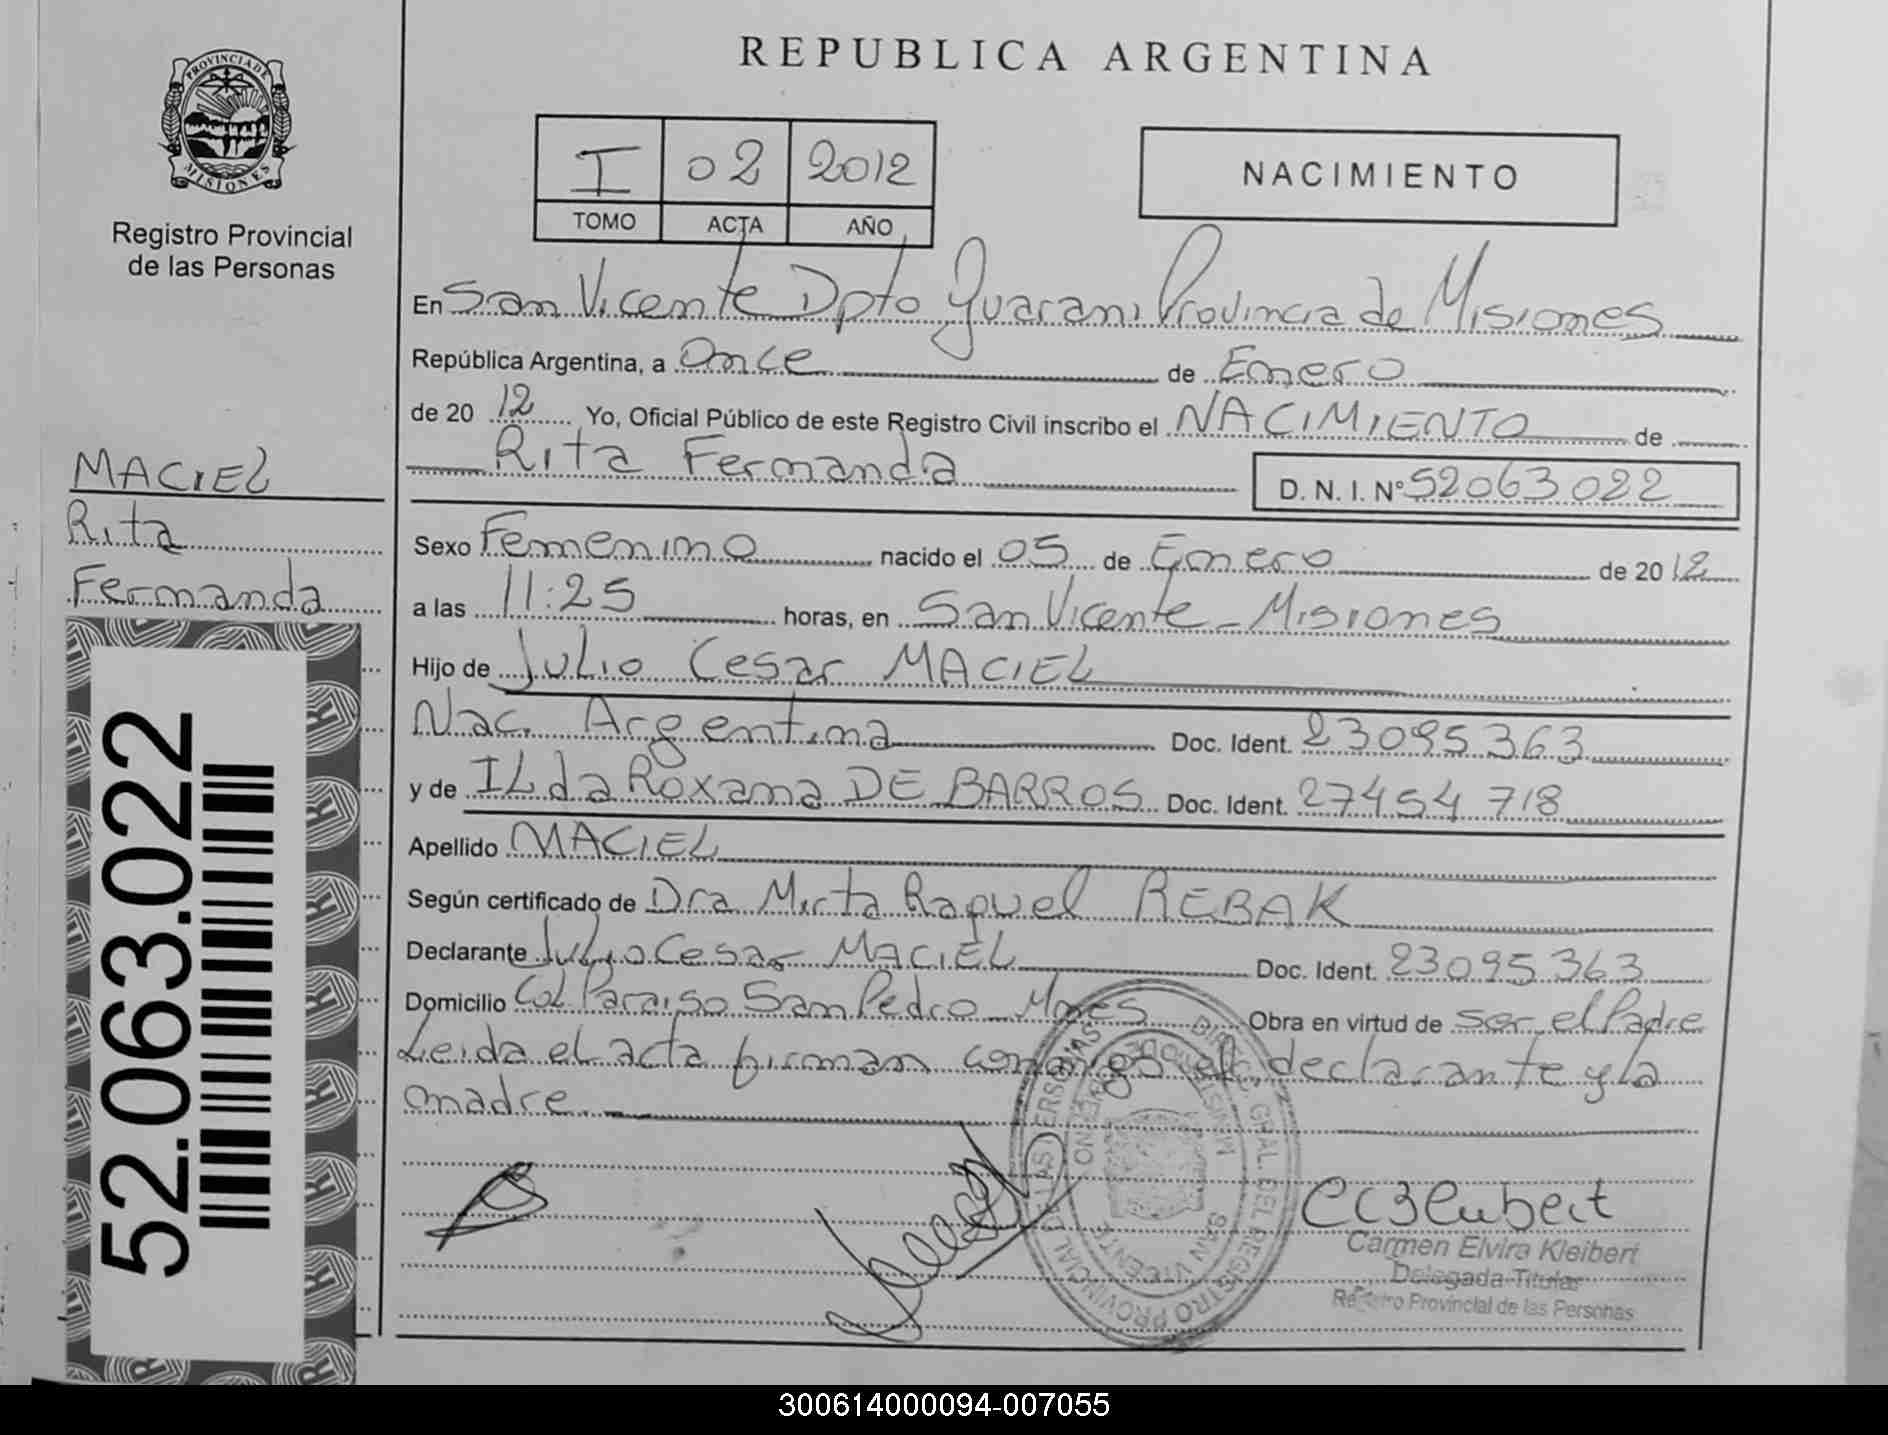 PROVINCIA DE
MISIONES
Registro Provincial
de las Personas
MACIEL
Rita
Fernanda
52.063.022
REPUBLICA ARGENTINA
I 02 2012
TOMO ACTA AÑO
NACIMIENTO
En San Vicente Dpto Guarani Provincia de Misiones
República Argentina, a Once de Enero
de 20 12 Yo, Oficial Público de este Registro Civil inscribo el NACIMIENTO de
Rita Fernanda D. N. I. Nº 52063022
Sexo Femenino nacido el 05 de Enero de 2012
a las 11:25 horas, en San Vicente - Misiones
Hijo de Julio Cesar MACIEL
Nac. Argentina Doc. Ident. 23095363
y de ILda Roxana DE BARROS Doc. Ident. 27454718
Apellido MACIEL
Según certificado de Dra Mirta Raquel REBAK
Declarante Julio Cesar MACIEL Doc. Ident. 23095363
Domicilio Col Paraiso San Pedro - Mnes Obra en virtud de ser el Padre
Leida el acta firman conmigo el declarante y la
madre.
Carmen Elvira Kleibert
Delegada Titular
Registro Provincial de las Personas
SAN VICENTE
300614000094-007055